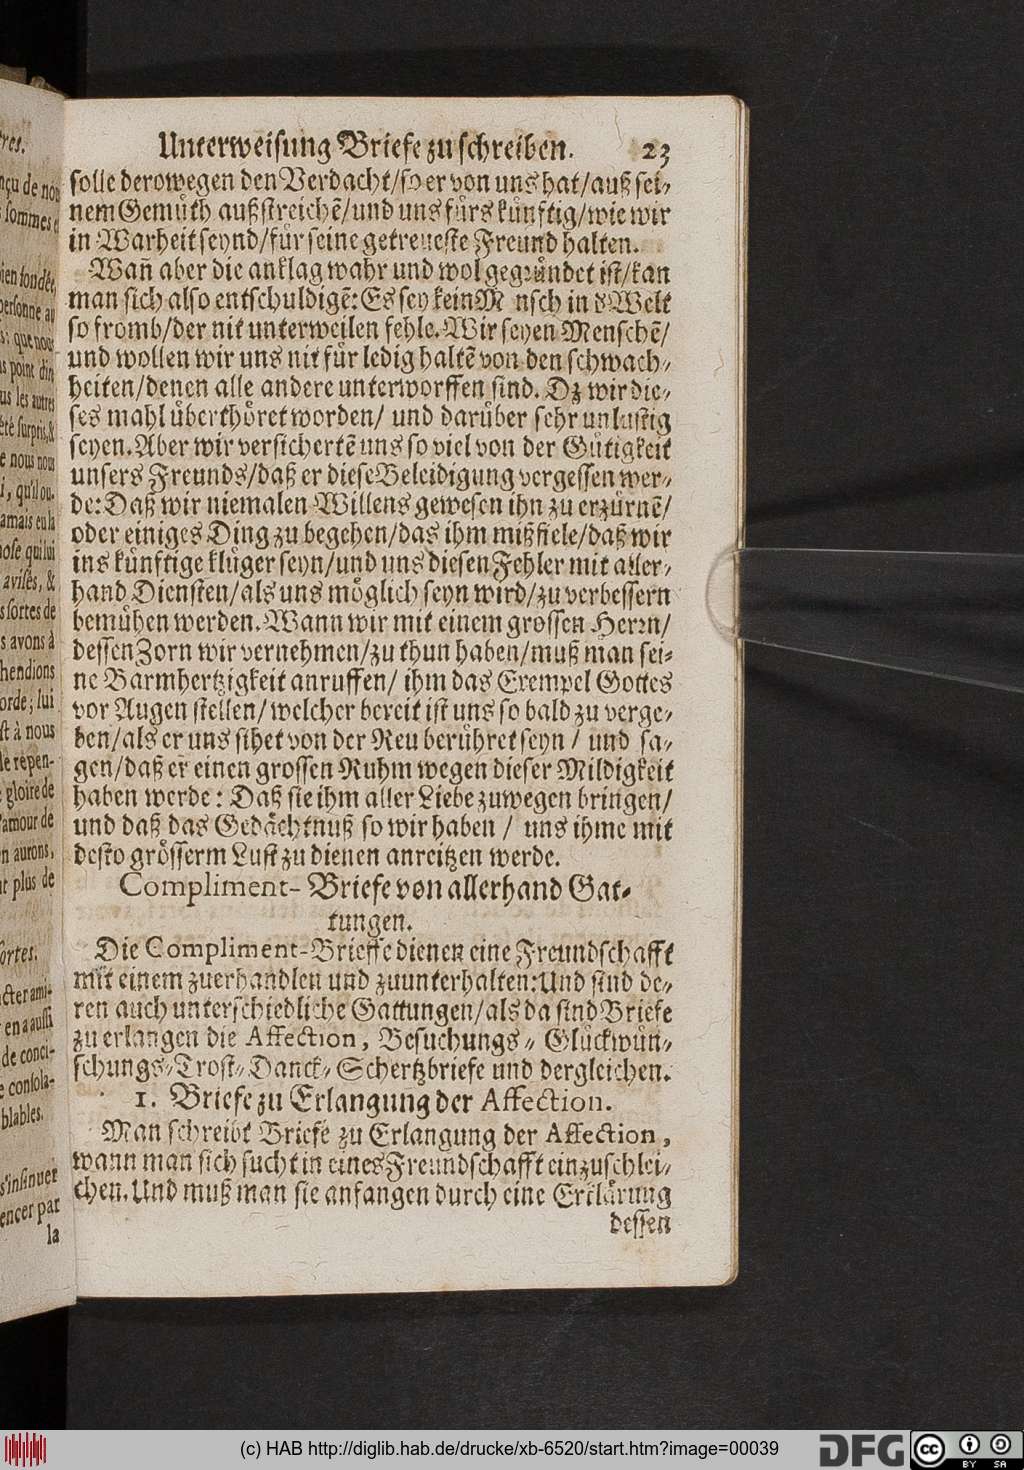 Unterweisung Briefe zu schreiben. 23
solle derowegen den Verdacht/so er von uns hat/auß sei-
nem Gemüth außstreichẽ/und uns fürs künftig/wie wir
in Warheit seynd/für seine getreueste Freund halten.
Wañ aber die anklag wahr und wol gegründet ist/kan
man sich also entschuldigẽ: Es sey kein M nsch in d Welt
so fromb/der nit unterweilen fehle. Wir seyen Menschẽ/
und wollen wir uns nit für ledig haltẽ von den schwach-
heiten/denen alle andere unterworffen sind. Dz wir die-
ses mahl überthöret worden/ und darüber sehr unlustig
seyen. Aber wir versichertẽ uns so viel von der Gütigkeit
unsers Freunds/daß er diese Beleidigung vergessen wer-
de: Daß wir niemalen Willens gewesen ihn zu erzürnẽ/
oder einiges Ding zu begehen/das ihm mißfiele/daß wir
ins künftige klüger seyn/und uns diesen Fehler mit aller-
hand Diensten/als uns möglich seyn wird/zu verbessern
bemühen werden. Wann wir mit einem grossen Herrn/
dessen Zorn wir vernehmen/zu thun haben/muß man sei-
ne Barmhertzigkeit anruffen/ ihm das Exempel Gottes
vor Augen stellen/welcher bereit ist uns so bald zu verge-
ben/als er uns sihet von der Reu berühret seyn / und sa-
gen/daß er einen grossen Ruhm wegen dieser Mildigkeit
haben werde: Daß sie ihm aller Liebe zuwegen bringen/
und daß das Gedächtnuß so wir haben / uns ihme mit
desto grösserm Lust zu dienen anreitzen werde.
Compliment-Briefe von allerhand Gat-
tungen.
Die Compliment-Brieffe dienen eine Freundschafft
mit einem zuerhandlen und zuunterhalten: Und sind de-
ren auch unterschiedliche Gattungen/als da sind Briefe
zu erlangen die Affection, Besuchungs- Glückwün-
schungs-Trost-Danck-Schertzbriefe und dergleichen.
1. Briefe zu Erlangung der Affection.
Man schreibt Briefe zu Erlangung der Affection,
wann man sich sucht in eines Freundschafft einzuschlei-
chen. Und muß man sie anfangen durch eine Erklärung
dessen
(c) HAB http://diglib.hab.de/drucke/xb-6520/start.htm?image=00039
DFG
cc BY SA